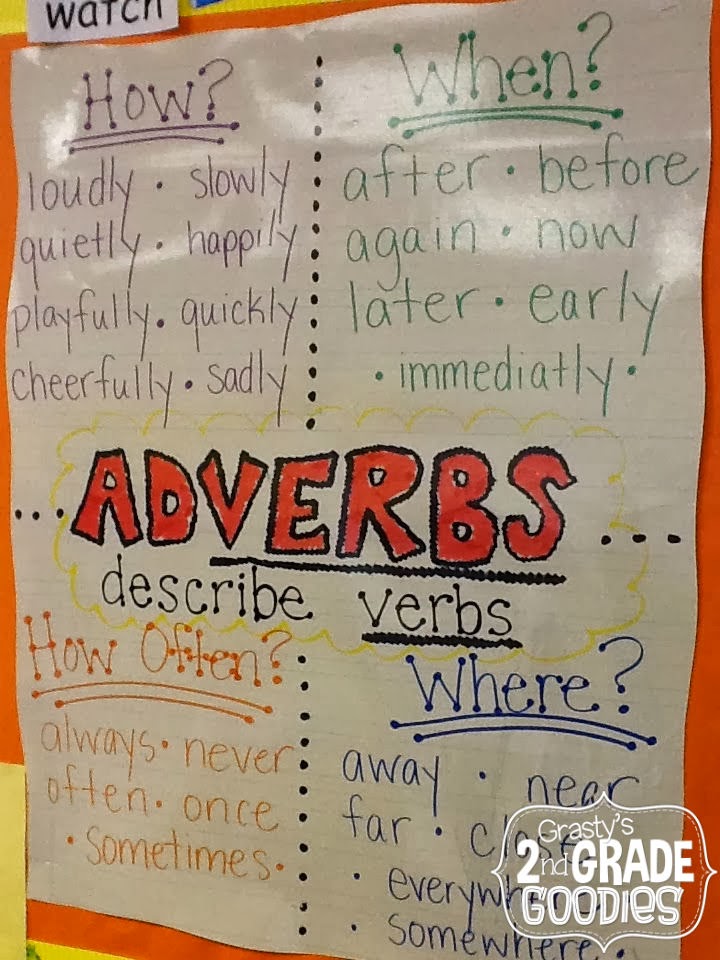 watch
How?
loudly • slowly
quietly • happily
playfully • quickly
cheerfully • sadly
When?
after • before
again • now
later • early
• immediatly •
...ADVERBS...
describe verbs
How Often?
always • never
often • once
• sometimes •
Where?
away • near
far • close
• everywhere
• somewhere •
Grasty's
2nd GRADE
GOODIES